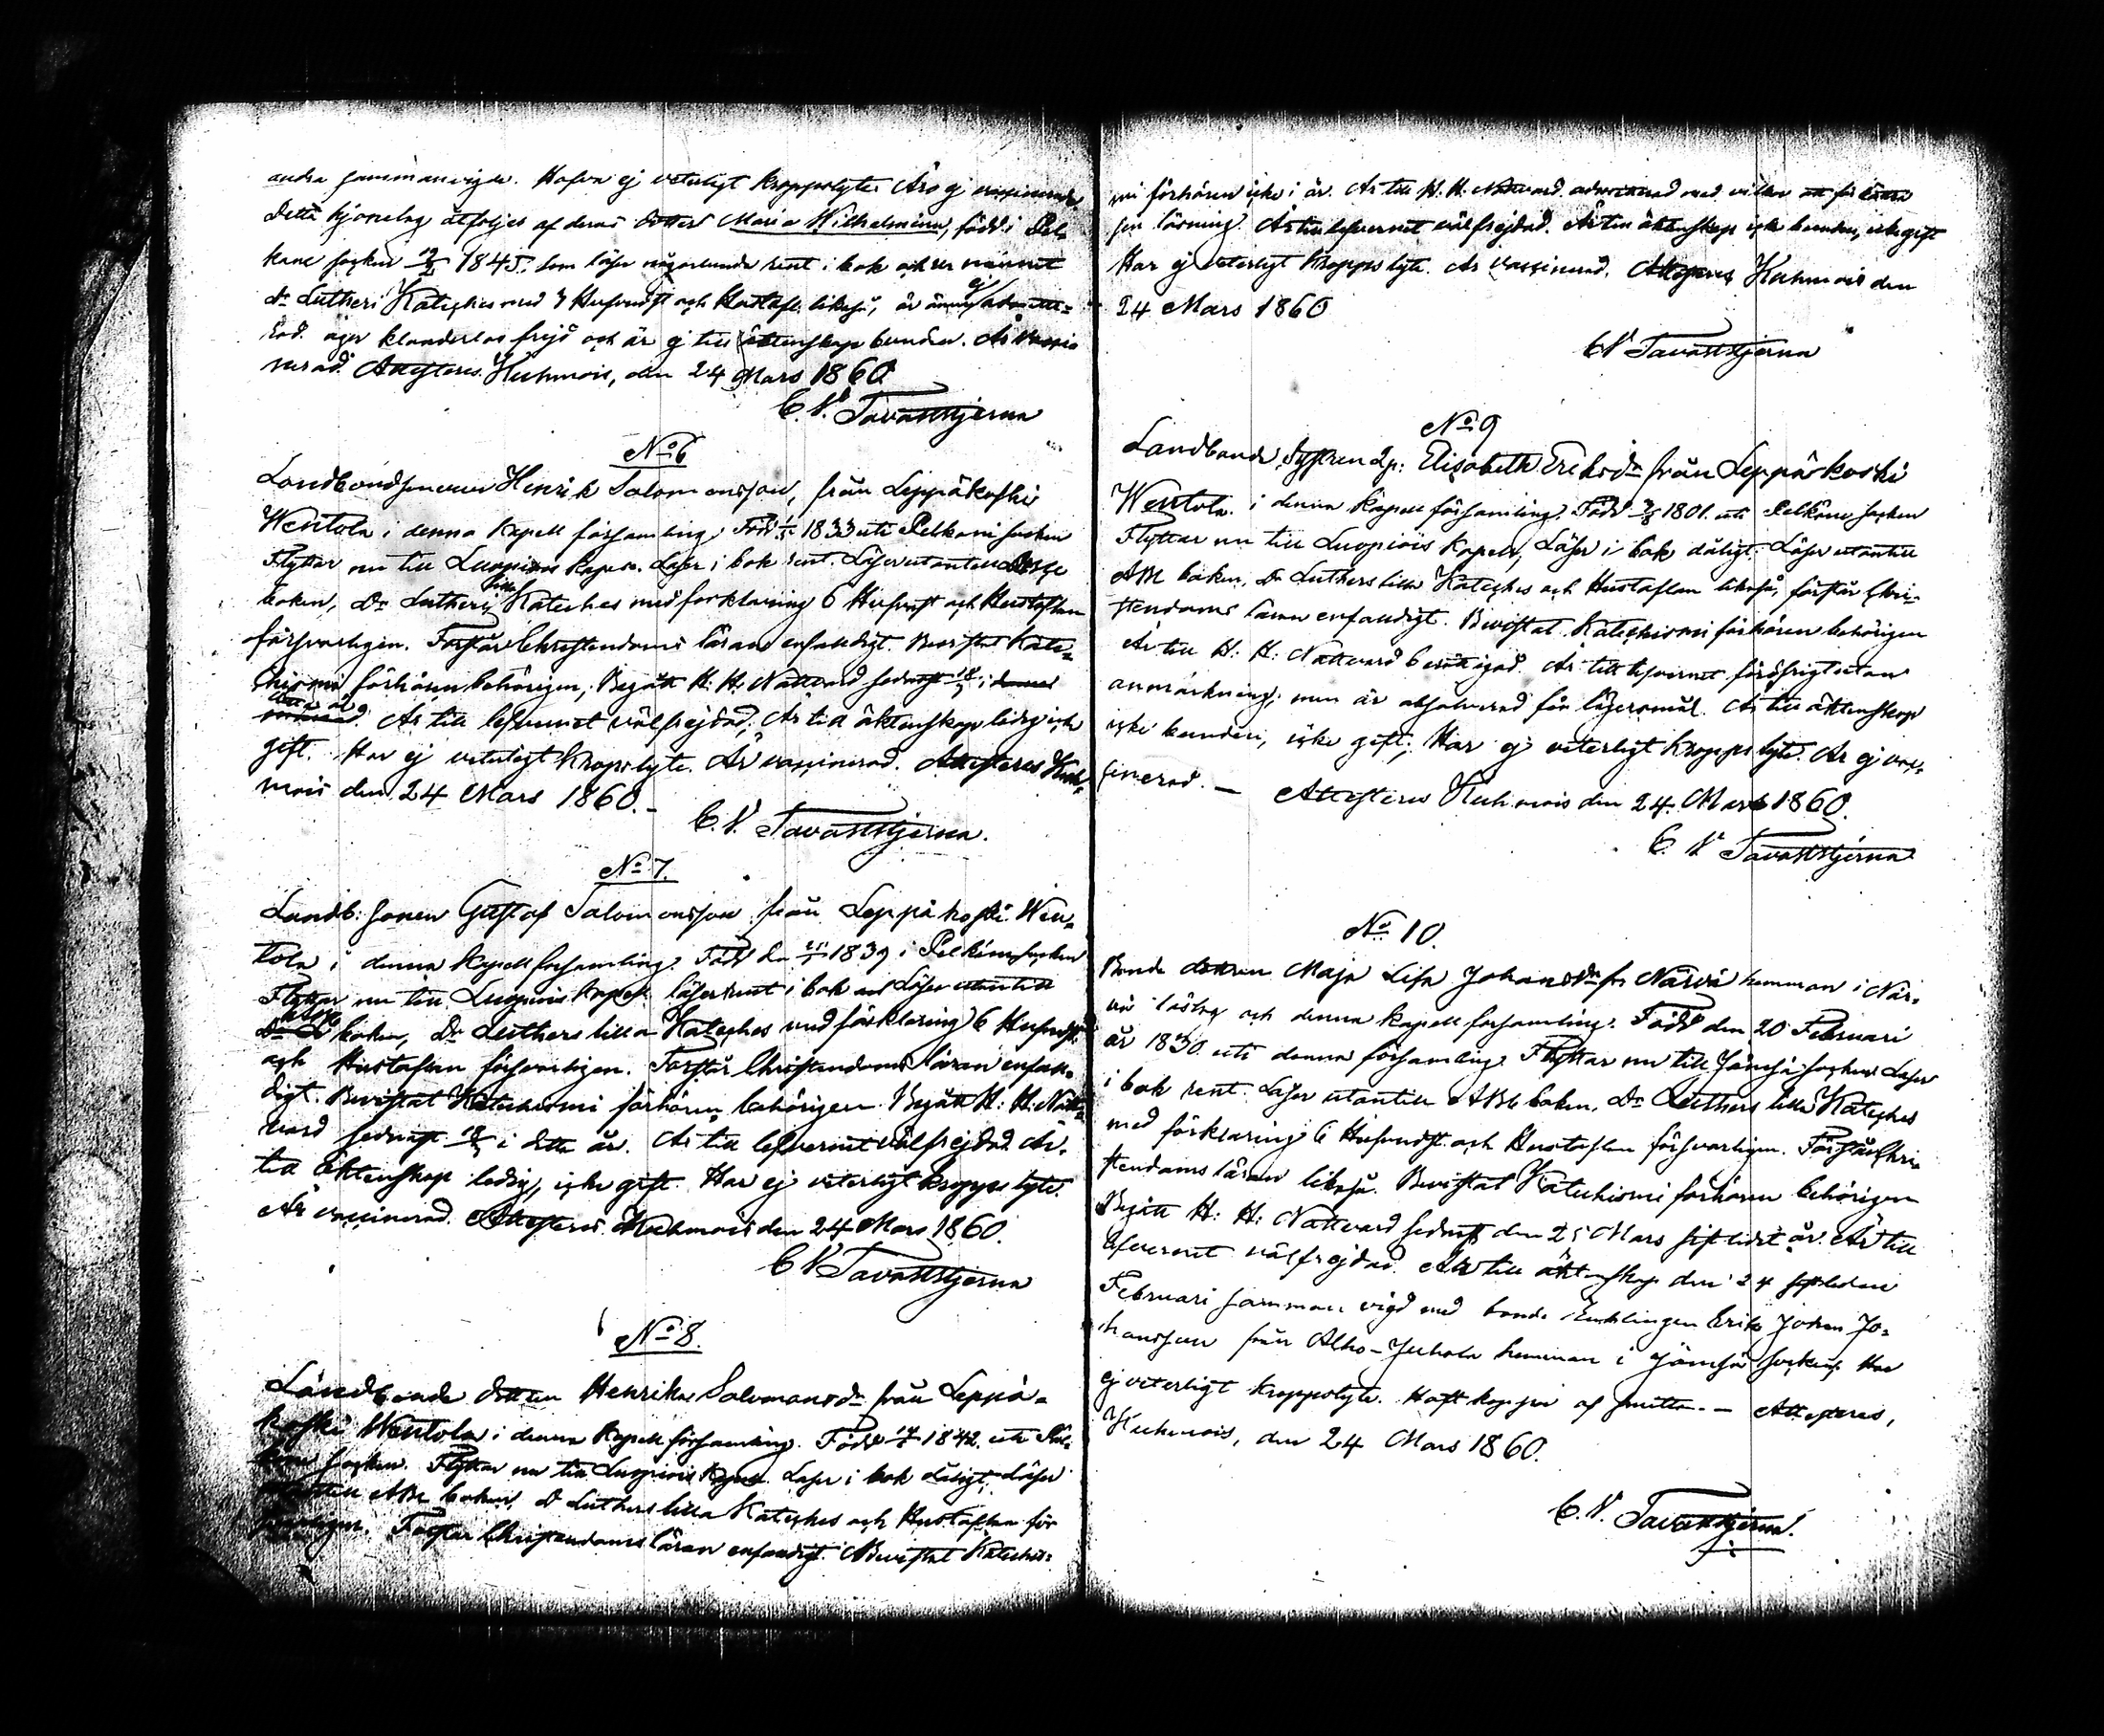 andra sammanvigde. Hafva ej veterligt kroppslyte. Äro ej vaccinerade
Detta hjonelag åtföljes af deras dotter Maria Wilhelmina, född i Pel-
käne socken 1845, som läser någorlunda rent i bok och ur minnet
Dr Lutheri Kateches med Hufvudst och Hustafl. likaså, är ännu ej admitte-
rad. äger klanderlös frejd och är ej till äktenskap bunden. Är vacci-
nerad. Attesteras Kuhmois, den 24 Mars 1860
C V. Tavaststjerna
No 6
Landbondsonen Henrik Salomonsson, från Leppäkoski
Wentola i denna Kapell församling. Född 1833 uti Pelkäne socken
Flyttar nu till Luopiois Kapell. Läser i bok rent. Läser utantill Abc
boken, Dr Lutheri lilla Kateches med förklaring 6 Hufvudst och Hustaflan
försvarligen. Förstår Christendoms läran enfaldigt. Bevistat Kate-
chismi förhören behörigen, Begått H. H. Nattvard sednast i
detta år. Är till lefvernet välfrejdad, Är till äktenskap ledig icke
gift. Har ej veterligt kroppslyte. Är vaccinerad. Attesteras Kuh-
mois den 24 Mars 1860.-
C. V. Tavaststjerna.
No 7.
Landb: Sonen Gustaf Salomonsson från Leppäkoski Wen-
tola i denna Kapell församling. Född den 1839 i Pelkäne socken
Flyttar nu till Luopiois Kapell läser rent i bok Läser utantill
boken, Dr Luthers lilla Kateches med förklaring 6 Hufvudst.
och Hustaflan försvarligen. Förstår Christendoms läran enfal-
digt. Bevistat Katechismi förhören behörigen. Begått H. H. Natt-
vard sednast i detta år. Är till lefvernet välfrejdad. Är
till äktenskap ledig, icke gift. Har ej veterligt kroppslyte.
Är vaccinerad. Attesteras Kuhmois den 24 Mars 1860.
C V Tavaststjerna
No 8.
Landbonde dottren Henrika Salomonsdr från Leppä-
koski Wentola i denna Kapell församling. Född 1842 uti Pel-
käne socken. Flyttar nu till Luopiois Kapell. Läser i bok dåligt, Läser
utantill ABC boken, Dr Luthers lilla Kateches och Hustaflan för
svarligen. Förstår Christendoms läran enfaldigt. Bevistat Katechis-
mi förhören icke i år. Är till H. H. Nattvard admitterad med villkor att
sin läsning. Är till lefvernet välfrejdad. Är till äktenskap icke bunden, icke gift
Har ej veterligt kroppslyte. Är vaccinerad. Attesteras Kuhmois den
24 Mars 1860
C V Tavaststjerna
No 9
Landbonde Systren Elisabeth Eriksdr från Leppäkoski
Wentola i denna Kapell församling. Född 1801 uti Pelkäne socken
Flyttar nu till Luopiois Kapell, Läser i bok dåligt. Läser utantill
ABC boken, Dr Luthers lilla Kateches och Hustaflan likaså, förstår Chri-
stendoms läran enfaldigt. Bevistat Katechismi förhören behörigen
Är till H: H: Nattvard berättigad. Är till lefvernet föröfrigt utan
anmärkning, men är absolverad för lägersmål. Är till äktenskap
icke bunden, icke gift, Har ej veterligt kroppslyte. Är ej vac-
cinerad. — Attesteras Kuhmois den 24 Mars 1860.
C. V Tavaststjerna
No 10.
Bonde dottren Maja Lisa Johansdr fr. Närvä hemman i När-
vä och denna kapell församling. Född den 20 Februari
år 1830 uti denna församling. Flyttar nu till Jämsä socken Läser
i bok rent. Läser utantill ABC boken, Dr Luthers lilla Kateches
med förklaring 6 Hufvudst. och Hustaflan försvarligen. Förstår Chri-
stendoms läran likaså. Bevistat Katechismi förhören behörigen
Begått H: H: Nattvard sednast den 25 Mars sistlidet år. Är till
lefvernet välfrejdad. Är till äktenskap den 24 sistleden
Februari sammanvigd med bonde Enklingen Erik Johan Jo-
hansson från Alho-Juhola hemman i Jämsä socken. Har
ej veterligt kroppslyte. Haft koppor af smitta. — Attesteras,
Kuhmois, den 24 Mars 1860.
C. V. Tavaststjerna.